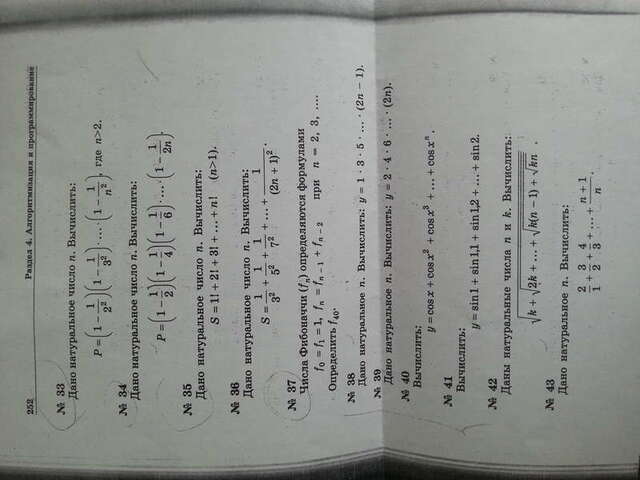 252 Раздел 4. Алгоритмизация и программирование
№ 33
Дано натуральное число n. Вычислить:
P = (1 − 1/2²)(1 − 1/3²) · … · (1 − 1/n²), где n>2.
№ 34
Дано натуральное число n. Вычислить:
P = (1 − 1/2)(1 − 1/4)(1 − 1/6) · … · (1 − 1/2n).
№ 35
Дано натуральное число n. Вычислить:
S = 1! + 2! + 3! + … + n! (n>1).
№ 36
Дано натуральное число n. Вычислить:
S = 1/3² + 1/5² + 1/7² + … + 1/(2n + 1)².
№ 37
Числа Фибоначчи (fₙ) определяются формулами
f₀ = f₁ = 1, fₙ = fₙ₋₁ + fₙ₋₂ при n = 2, 3, ….
Определить f₄₀.
№ 38
Дано натуральное n. Вычислить: y = 1 · 3 · 5 · … · (2n − 1).
№ 39
Дано натуральное n. Вычислить: y = 2 · 4 · 6 · … · (2n).
№ 40
Вычислить:
y = cos x + cos x² + cos x³ + … + cos xⁿ.
№ 41
Вычислить:
y = sin1 + sin1,1 + sin1,2 + … + sin2.
№ 42
Даны натуральные числа n и k. Вычислить:
√(k + √(2k + … + √(k(n − 1) + √(kn)))).
№ 43
Дано натуральное n. Вычислить:
2/1 + 3/2 + 4/3 + … + (n + 1)/n.